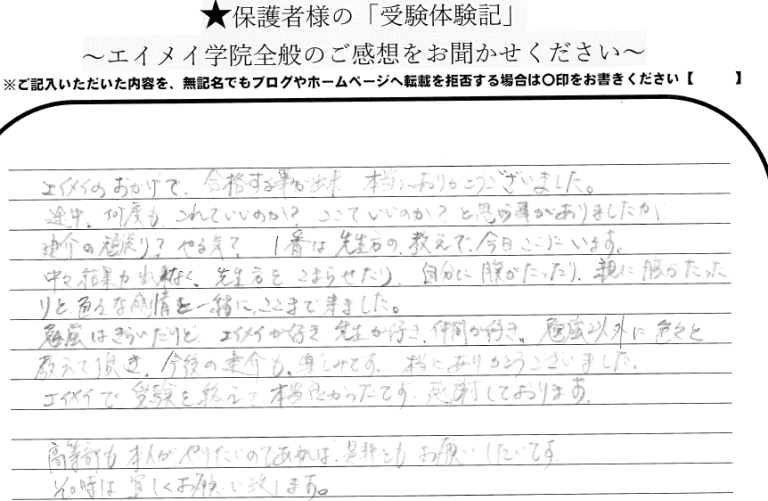 ★保護者様の「受験体験記」
～エイメイ学院全般のご感想をお聞かせください～
※ご記入いただいた内容を、無記名でもブログやホームページへ転載を拒否する場合は〇印をお書きください【 】
エイメイのおかげで、合格する事が出来 本当にありがとうございました。
途中、何度も、これでいいのか？ ここでいいのか？と思う事がありましたが
建介の頑張り？ やる気？ 1番は先生方の、教えで、今日ここにいます。
中々結果が出なく、先生方を こまらせたり、自分に腹がたったり、親に腹がたった
りと、色んな感情と一緒に、ここまで来ました。
勉強はきらいだけど、エイメイが好き 先生が好き、仲間が好き。勉強以外に色々と
教えて頂き、今後の建介も、楽しみです。本当にありがとうございました。
エイメイで、受験を終えて 本当良かったです。感謝しております。
高等部も本人がやりたいのであれば、是非ともお願いしたいです
その時は宜しくお願い致します。